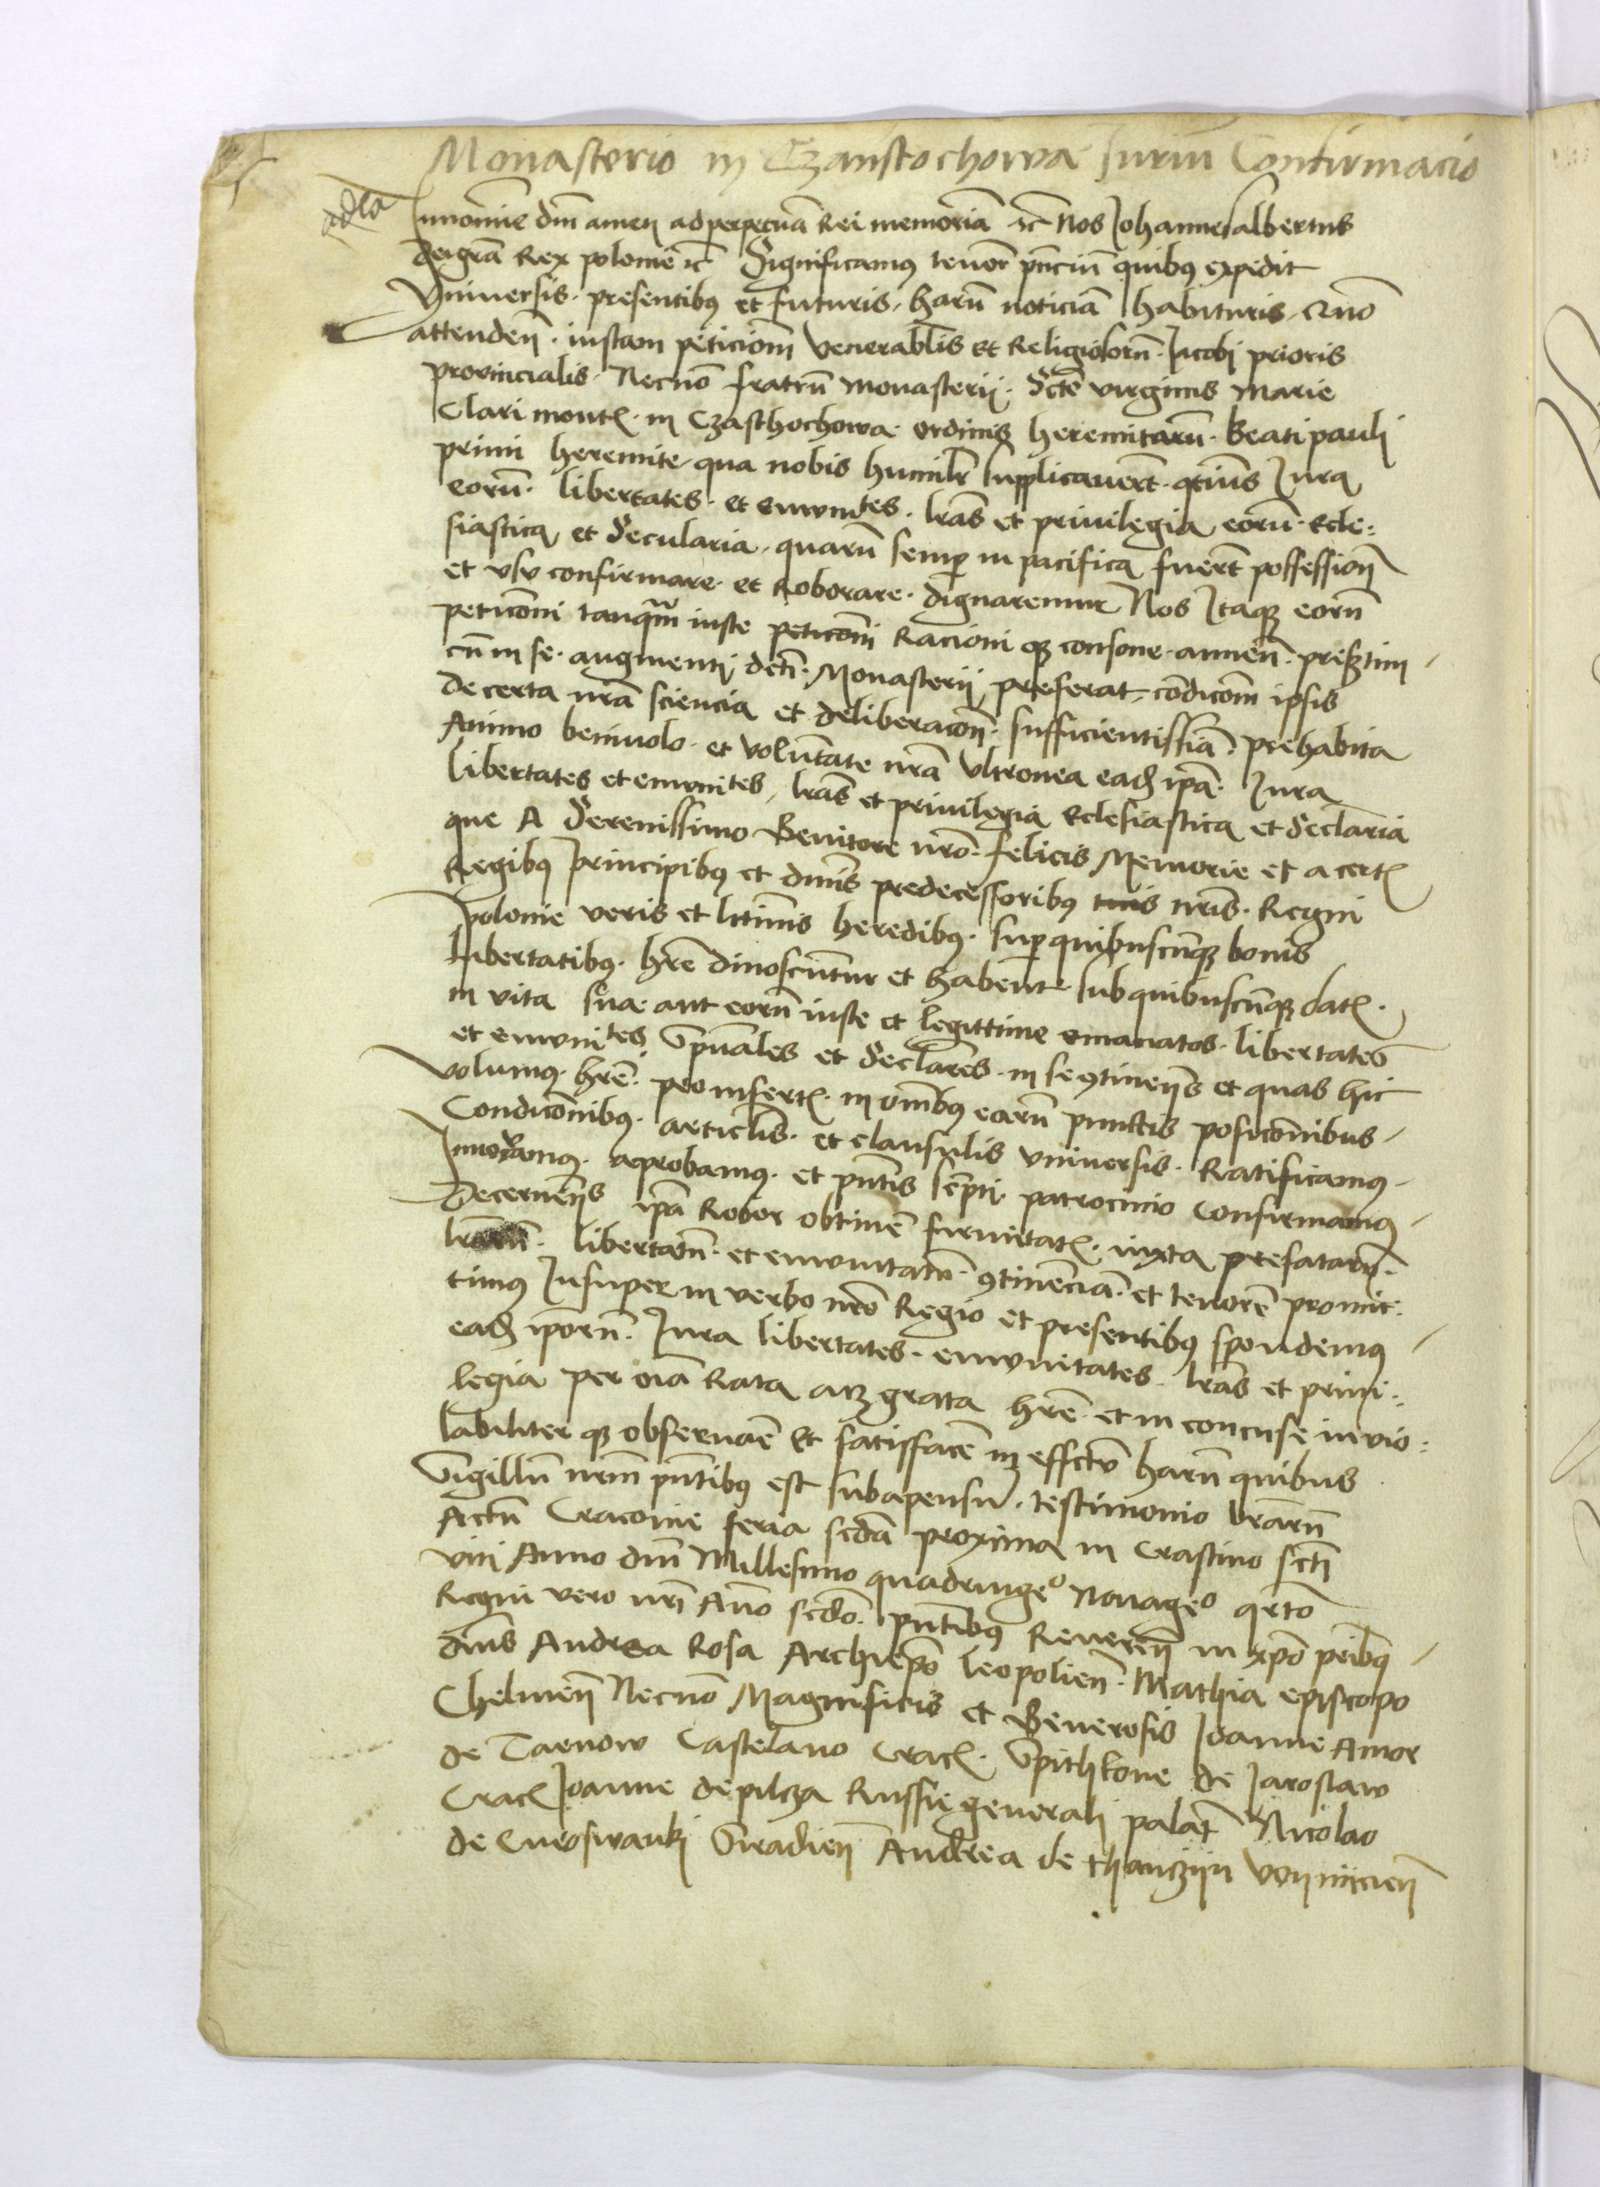 Monasterio in Czanstochowa Iurium Confirmacio
In nomīe dnī amen ad perpetuā Rei memoriā etc̄ Nos Johannes albertus
dei grā Rex polonie etc̄ Significamus tenorē pn̄ciū quibus expedit
Vniversis presentibus et futuris harū noticiā habituris Quō
attenden̄ iustam peticionē Venerablis et Religiosorū Jacobi prioris
provincialis Necnō fratrū Monasterii Scte Virginis Marie
Clari mont̄ in Czasthochowa ordinis heremitarū Beati pauli
primi heremite qua nobis humilr̄ supplicauert̄ qtin9 Iura
eorū libertates et emunites lrās et privilegia eorū Ecle=
siastica et Secularia quarū semper in pacifica fuerūt possession̄
et vsu confirmare et Roborare dignaremur Nos Itaque eorū
peticōni tanquam iuste peticōni Racioni que consone annuen̄ presertim
cū in se augmenti dcti Monasterii preferat condicōnē ipsis
de certa nrā sciencia et deliberacōn̄ sufficientissīa prehabita
Animo benivolo et voluntate nrā Vltronea ead ipā Iura
libertates et emunites lrās et privilegia Eclesiastica et Seclaria
que A Serenissimo Genitore nrō felicis Memorie et a cert̄
Regibus Principibus et dnīs predecessoribus nrīs Regni
polonie veris et ltimis heredibus super quibuscunque bonis
libertatibus hrē dinoscuntur et habent sub quibuscunque dat̄
in vita sua aut eorū iuste et legittime emanatos libertates
et emunites Spūales et Seclares in se 9tinen̄s et quas hic
volumus hrē pro insert̄ in omībus earū punctis posicōnibus
Condicōnibus articlīs et clausulis vniversis Ratificamus
Innovamus aprobamus et pn̄tis scripti patrocinio confirmamus
Decernen̄s ipā Robor obtinē firmitat̄ iuxta prefatarū
lrārū libertatū et emunitatū 9tinenciā et tenorē promit=
timus Insuper in verbo nrō Regio et presentibus spondemus
ead ipsorū Iura libertates emunitates lrās et privi=
legia per oīa Rata atque grata hrē et inconcuse invio=
labiliter que observāe et satisfacē in effctu harū quibus
Sigillū nrm̄ pn̄tibus est subapensū testimonio lrārū
Actū Cracovie feria scdā proxima in Crastino scti
viti Anno dnī Millesimo quadringeo Nonageo qrto
Regni vero nrī Ano scdō pn̄tibus Reveren̄ in xpō pribus
dnīs Andrea Rosa Archiepō leopolien̄ Mathia episcopo
Chelmen̄ Necnō Magnificis et Generosis Joanne Amor
de Tarnow Castelano Crac̄ Spithkone de Jaroslaw
Crac̄ Joanne de pilcza Russie generali palat̄ Nicolao
de Curoswanki Siradien̄ Andrea de thanczijn Voijnicien̄